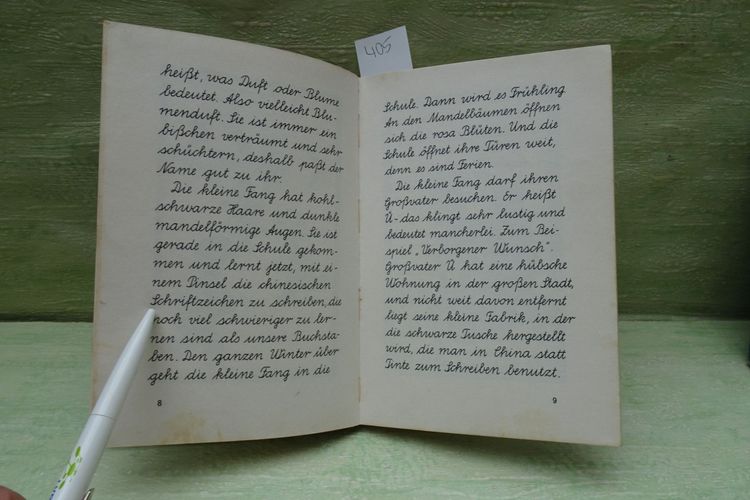 heißt, was Duft oder Blume
bedeutet. Also vielleicht Blu-
menduft. Sie ist immer ein
bißchen verträumt und sehr
schüchtern, deshalb paßt der
Name gut zu ihr.
Die kleine Fang hat kohl-
schwarze Haare und dunkle
mandelförmige Augen. Sie ist
gerade in die Schule gekom-
men und lernt jetzt, mit ei-
nem Pinsel die chinesischen
Schriftzeichen zu schreiben, die
noch viel schwieriger zu ler-
nen sind als unsere Buchsta-
ben. Den ganzen Winter über
geht die kleine Fang in die
8
405
Schule. Dann wird es Frühling
An den Mandelbäumen öffnen
sich die rosa Blüten. Und die
Schule öffnet ihre Türen weit,
denn es sind Ferien.
Die kleine Fang darf ihren
Großvater besuchen. Er heißt
Ü - das klingt sehr lustig und
bedeutet mancherlei. Zum Bei-
spiel „Verborgener Wunsch".
Großvater Ü hat eine hübsche
Wohnung in der großen Stadt,
und nicht weit davon entfernt
liegt seine kleine Fabrik, in der
die schwarze Tusche hergestellt
wird, die man in China statt
Tinte zum Schreiben benutzt.
9